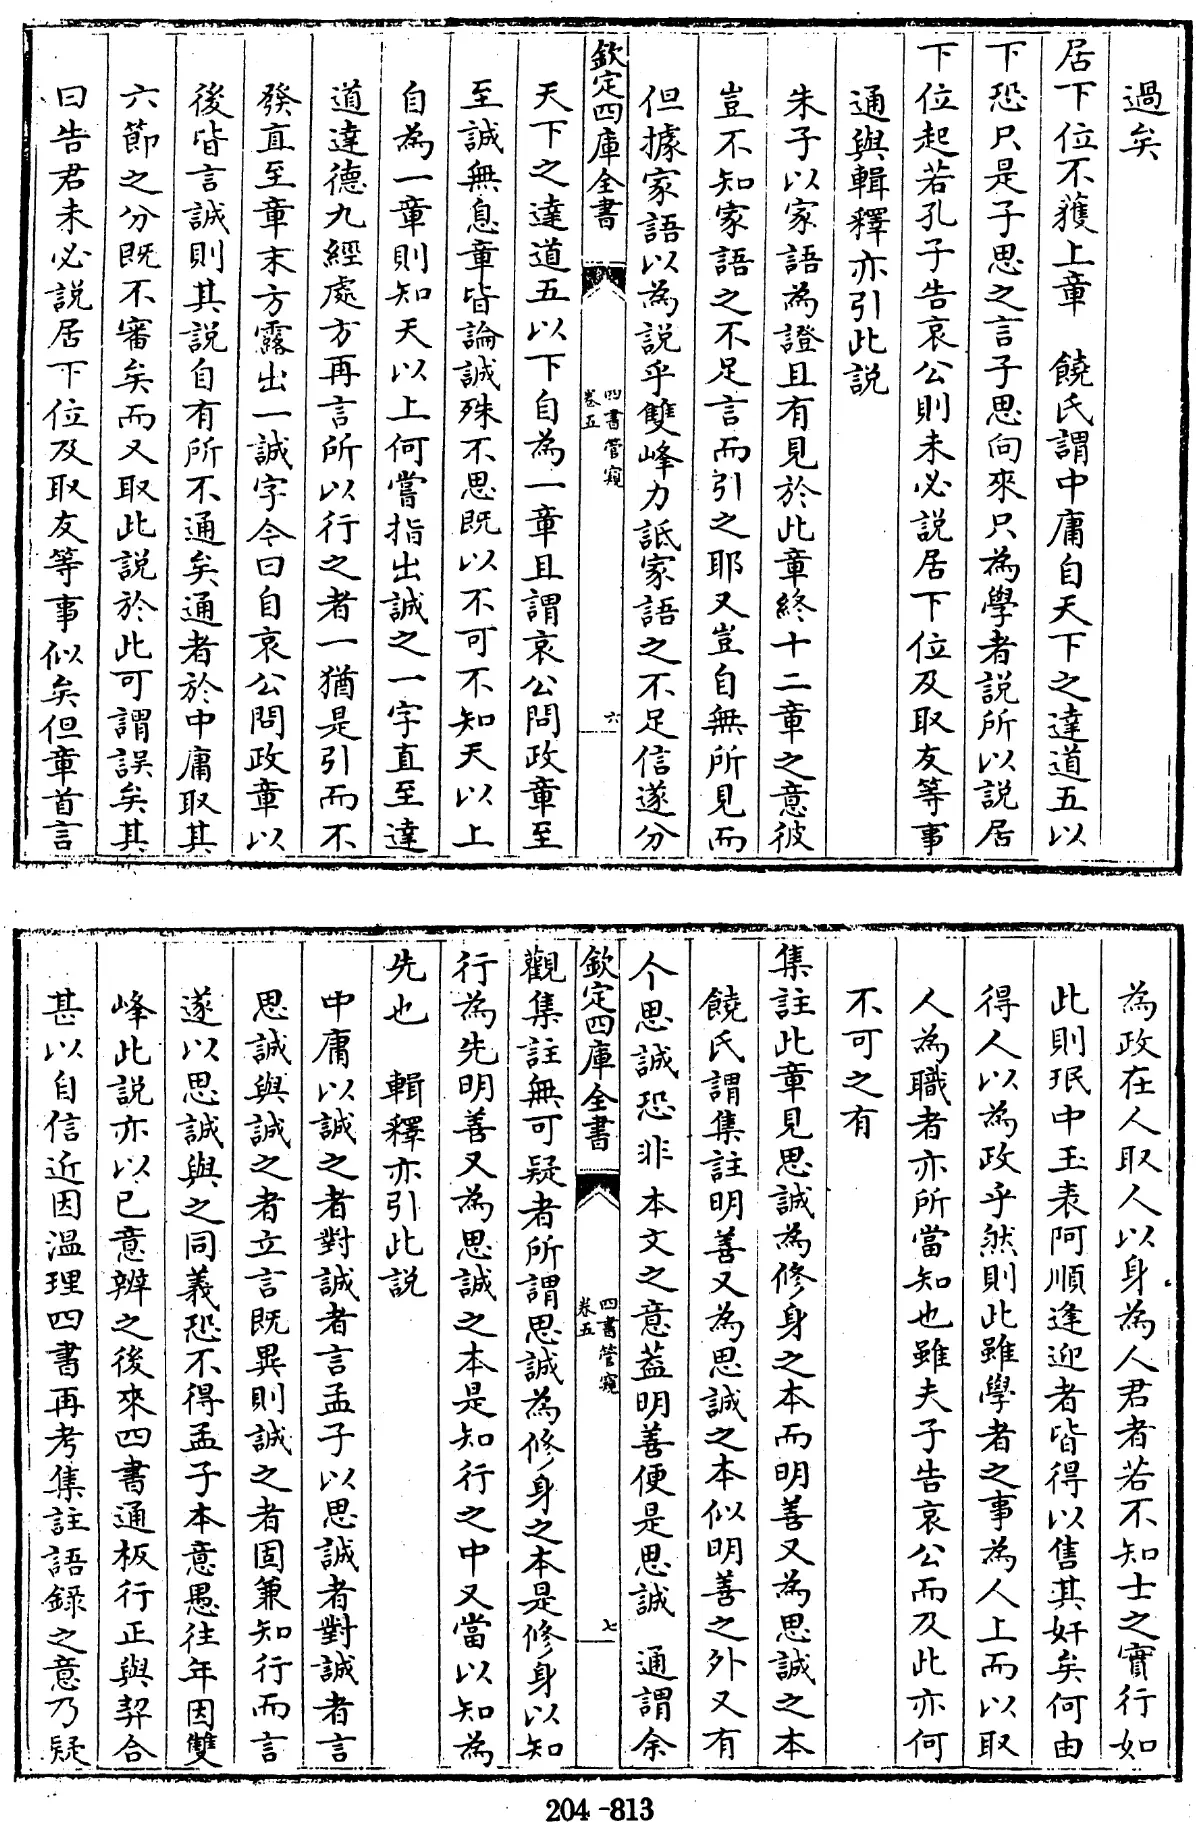 過矣
居下位不獲上章　饒氏謂中庸自天下之達道五以
下恐只是子思之言子思向來只為學者說所以說居
下位起若孔子告哀公則未必說居下位及取友等事
通與輯釋亦引此說
朱子以家語為證且有見於此章終十二章之意彼
豈不知家語之不足言而引之耶又豈自無所見而
但據家語以為說乎雙峰力詆家語之不足信遂分
欽定四庫全書
四書管窺
卷五
六
天下之達道五以下自為一章且謂哀公問政章至
至誠無息章皆論誠殊不思既以不可不知天以上
自為一章則知天以上何嘗指出誠之一字直至達
道達德九經處方再言所以行之者一猶是引而不
發直至章末方露出一誠字今曰自哀公問政章以
後皆言誠則其說自有所不通矣通者於中庸取其
六節之分既不審矣而又取此說於此可謂誤矣其
曰告君未必說居下位及取友等事似矣但章首言
為政在人取人以身為人君者若不知士之實行如
此則珉中玉表阿順逢迎者皆得以售其奸矣何由
得人以為政乎然則此雖學者之事為人上而以取
人為職者亦所當知也雖夫子告哀公而及此亦何
不可之有
集註此章見思誠為修身之本而明善又為思誠之本
饒氏謂集註明善又為思誠之本似明善之外又有
个思誠恐非　本文之意蓋明善便是思誠　通謂余
欽定四庫全書
四書管窺
卷五
七
觀集註無可疑者所謂思誠為修身之本是修身以知
行為先明善又為思誠之本是知行之中又當以知為
先也　輯釋亦引此說
中庸以誠之者對誠者言孟子以思誠者對誠者言
思誠與誠之者立言既異則誠之者固兼知行而言
遂以思誠與之同義恐不得孟子本意愚往年因雙
峰此說亦以已意辨之後來四書通板行正與契合
甚以自信近因溫理四書再考集註語錄之意乃疑
204-813